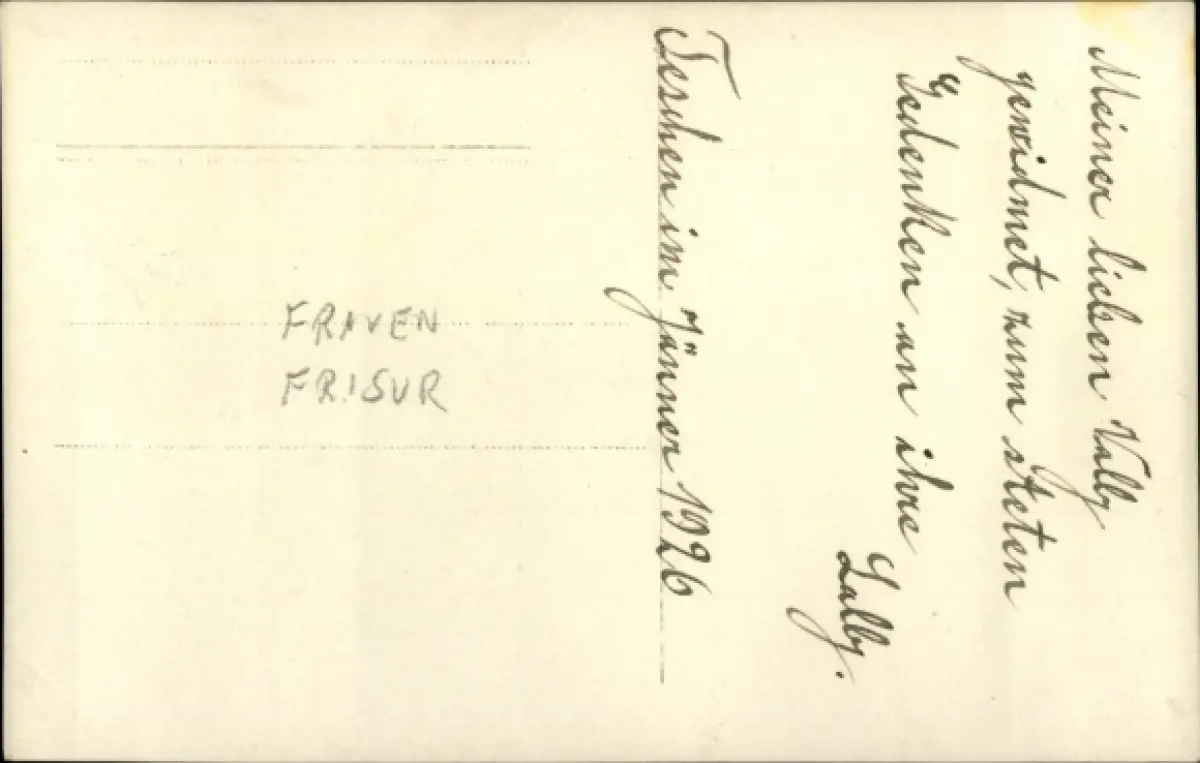 Meiner lieben Vally
gewidmet, zum steten
Gedenken an ihre
Lally.
Teschen im Jänner 1926
FRAUEN
FRISUR